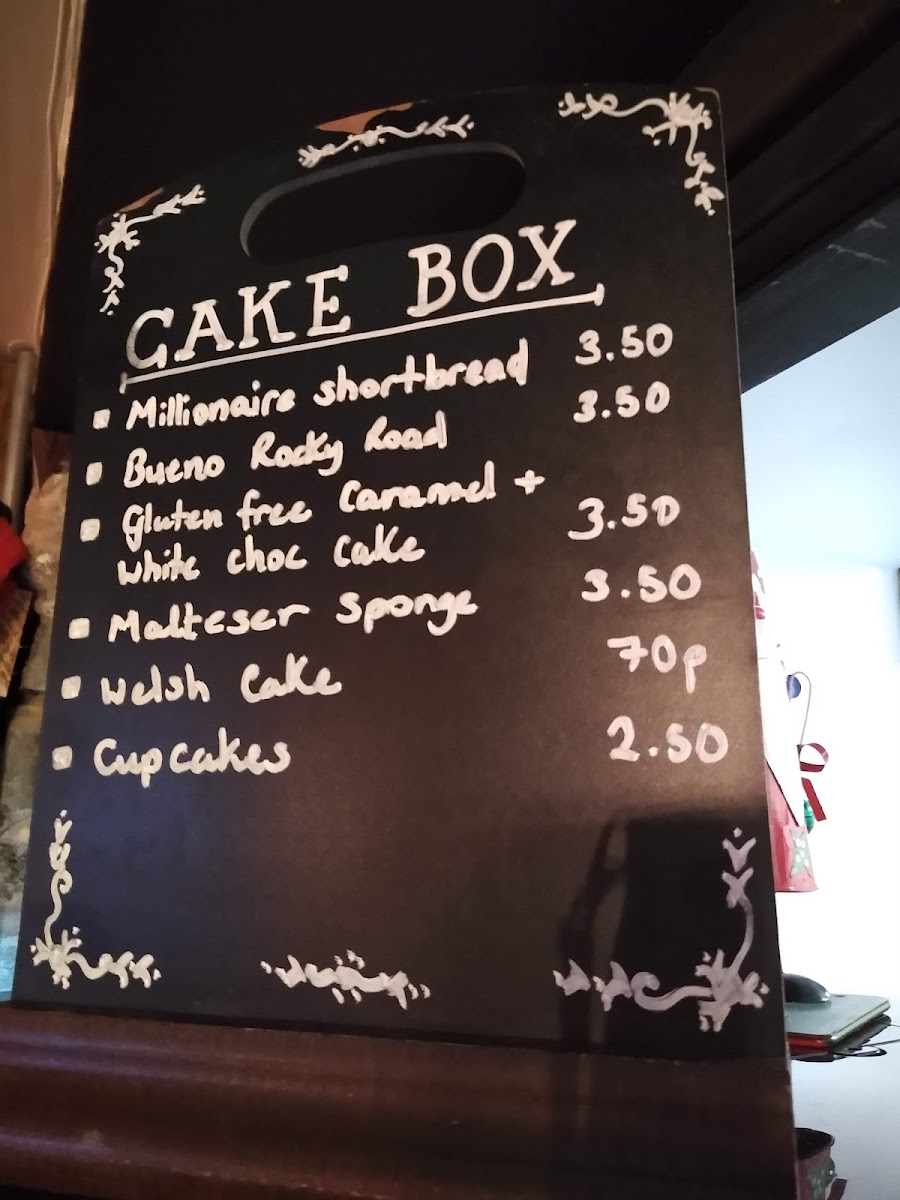 CAKE BOX
Millionaire shortbread 3.50
Bueno Rocky Road 3.50
Gluten free Caramel +
white choc cake 3.50
Malteser Sponge 3.50
Welsh Cake 70p
Cupcakes 2.50